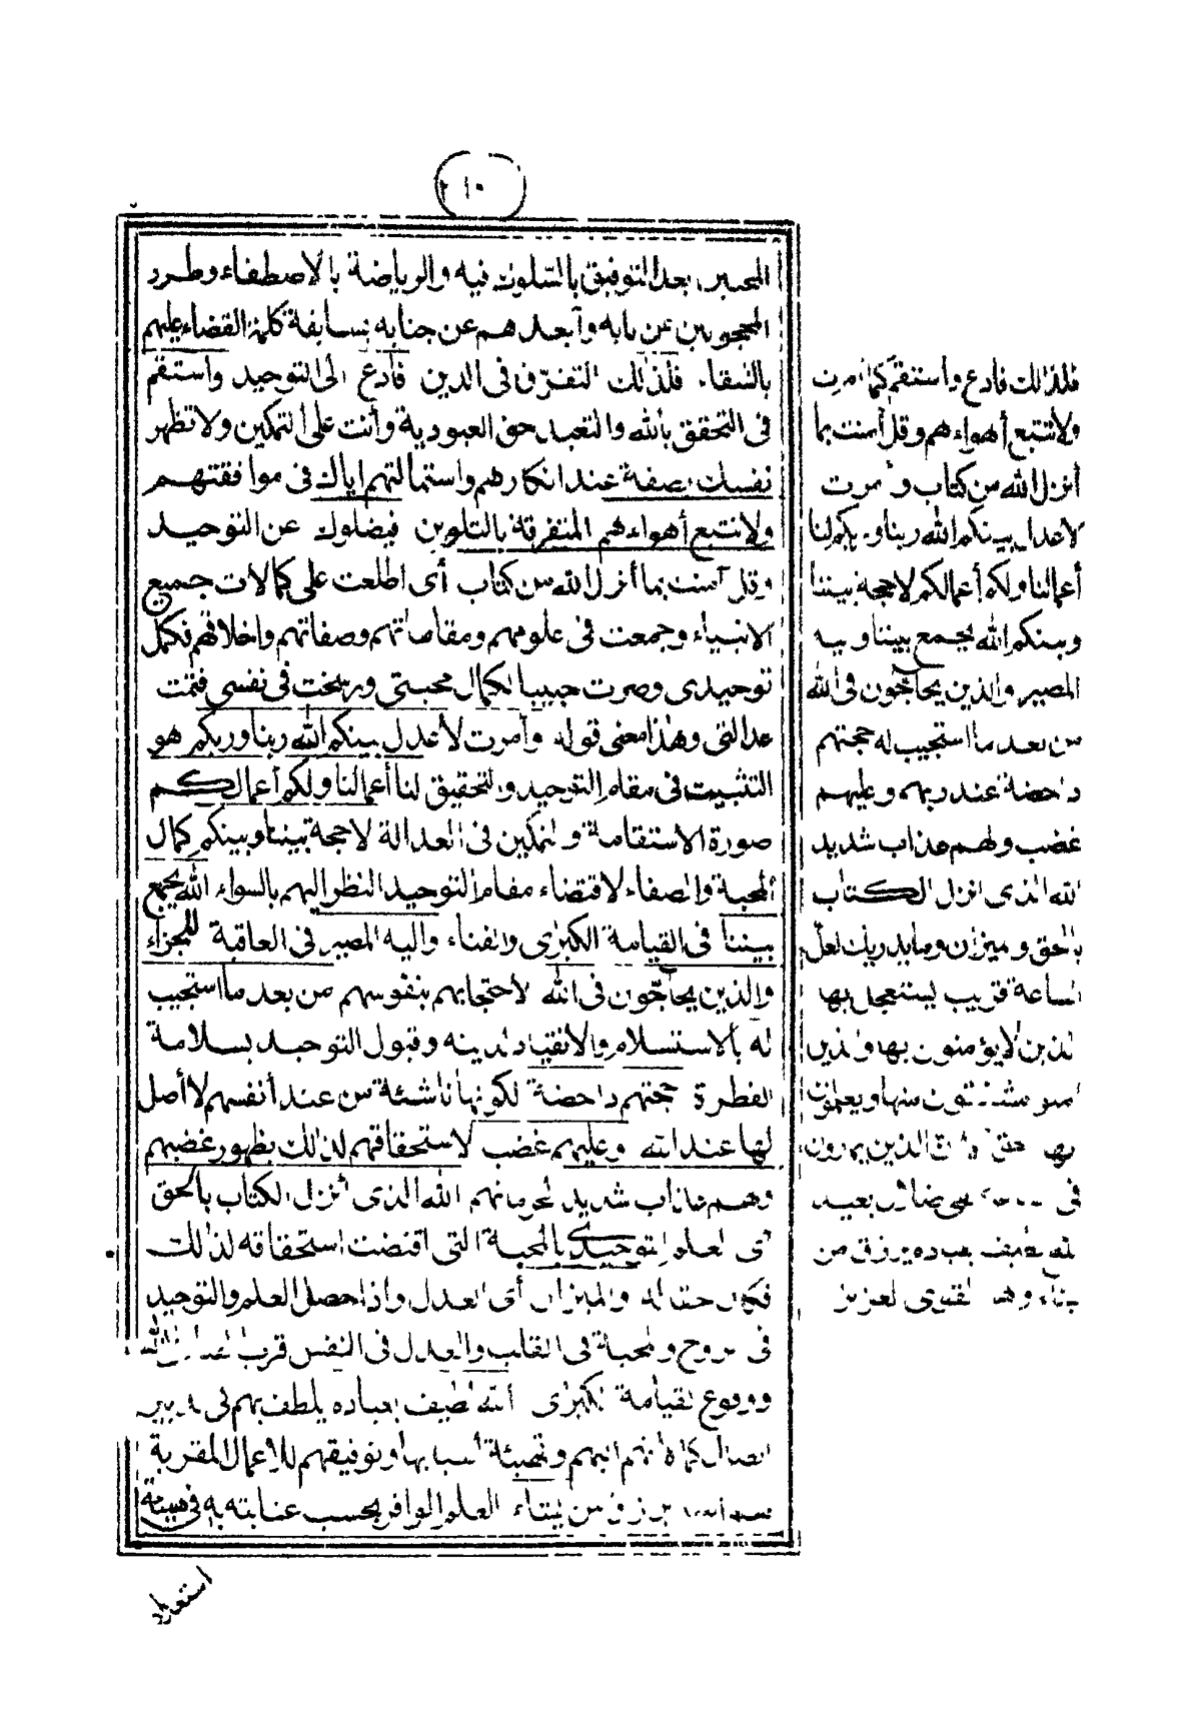 ٢١٠
المحبين بعد التوفيق بالسلوك فيه والرياضة بالاصطفاء وطرد
المحجوبين عن بابه وأبعدهم عن جنابه بسابقة كلمة القضاء عليهم
بالشقاء فلذلك التفرّق فى الدين فادع الى التوحيد واستقم
فى التحقق بالله والتعبد حق العبودية وأنت على التمكين ولا تظهر
نفسك بصفة عند انكارهم واستمالتهم اياك فى موافقتهم
ولا تتبع أهواءهم المتفرقة بالتلوين فيضلوك عن التوحيد
وقل آمنت بما أنزل الله من كتاب أى اطلعت على كمالات جميع
الانبياء وجمعت فى علومهم ومقاماتهم وصفاتهم واخلاقهم فكمل
توحيدى وصرت حبيبا لكمال محبتى ورسخت فى نفسى فتمت
عدالتى وهذا معنى قوله وأمرت لأعدل بينكم الله ربنا وربكم هو
التثبيت فى مقام التوحيد والتحقيق لنا أعمالنا ولكم أعمالكم
صورة الاستقامة والتمكين فى العدالة لا حجة بيننا وبينكم كمال
المحبة والصفاء لاقتضاء مقام التوحيد النظر اليهم بالسواء الله يجمع
بيننا فى القيامة الكبرى والفناء واليه المصير فى العاقبة للجزاء
والذين يحاجّون فى الله لاحتجابهم بنفوسهم من بعد ما استجيب
له بالاستسلام والانقياد لدينه وقبول التوحيد بسلامة
الفطرة حجتهم داحضة لكونها ناشئة من عند أنفسهم لا أصل
لها عند الله وعليهم غضب لاستحقاقهم لذلك بظهور غضبهم
ولهم عذاب شديد لحرمانهم الله الذى أنزل الكتاب بالحق
أى العلم التوحيدى بالمحبة التى اقتضت استحقاقه لذلك
فكان حقا له والميزان أى العدل واذا حصل العلم والتوحيد
فى الروح والمحبة فى القلب والعدل فى النفس قرب
ووقوع القيامة الكبرى الله لطيف بعباده يلطف بهم فى تدبير
ايصال كمالاتهم اليهم وتهيئة أسبابها وتوفيقهم للاعمال المقربة
يرزق من يشاء العلم الوافر بحسب عنايته به فى هيئة
استعداد
فلذلك فادع واستقم كما أمرت
ولا تتبع أهواءهم وقل آمنت بما
أنزل الله من كتاب وأمرت
لأعدل بينكم الله ربنا وربكم لنا
أعمالنا ولكم أعمالكم لا حجة بيننا
وبينكم الله يجمع بيننا واليه
المصير والذين يحاجّون فى الله
من بعد ما استجيب له حجتهم
داحضة عند ربهم وعليهم
غضب ولهم عذاب شديد
الله الذى أنزل الكتاب
بالحق والميزان وما يدريك لعلّ
الساعة قريب يستعجل بها
الذين لا يؤمنون بها والذين
آمنوا مشفقون منها ويعلمون
أنها الحق ألا إن الذين يمارون
فى الساعة لفى ضلال بعيد
الله لطيف بعباده يرزق من
يشاء وهو القوى العزيز